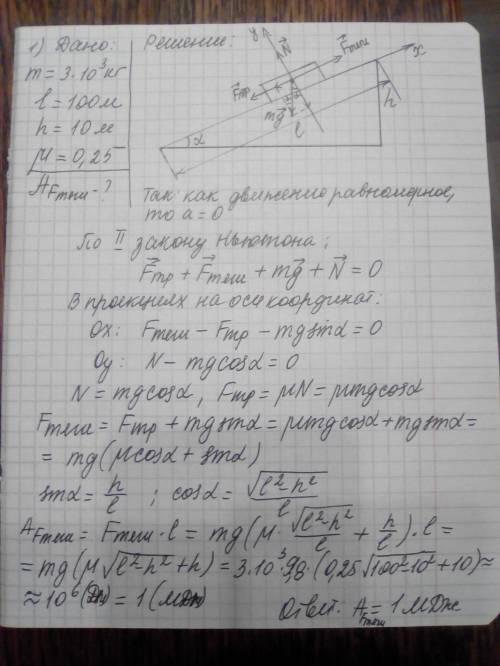 1) Дано:
m = 3·10³кг
l = 100м
h = 10м
μ = 0,25
A_Fтяги - ?
Решение:
y N⃗ F⃗тяги x
F⃗тр α α mg⃗ l h
α
Так как движение равномерное,
то a = 0
По II закону Ньютона:
F⃗тр + F⃗тяги + mg⃗ + N⃗ = 0
В проекциях на оси координат:
Ox: Fтяги - Fтр - mg sinα = 0
Oy: N - mg cosα = 0
N = mg cosα, Fтр = μN = μmg cosα
Fтяги = Fтр + mg sinα = μmg cosα + mg sinα =
= mg(μcosα + sinα)
sinα = h/l ; cosα = √(l²-h²)/l
A_Fтяги = Fтяги · l = mg(μ · √(l²-h²)/l + h/l) · l =
= mg(μ√(l²-h²) + h) = 3·10³·9,8·(0,25√(100²-10²) + 10) ≈
≈ 10⁶ (Дж) = 1 (МДж)
Ответ: A_Fтяги = 1 МДж